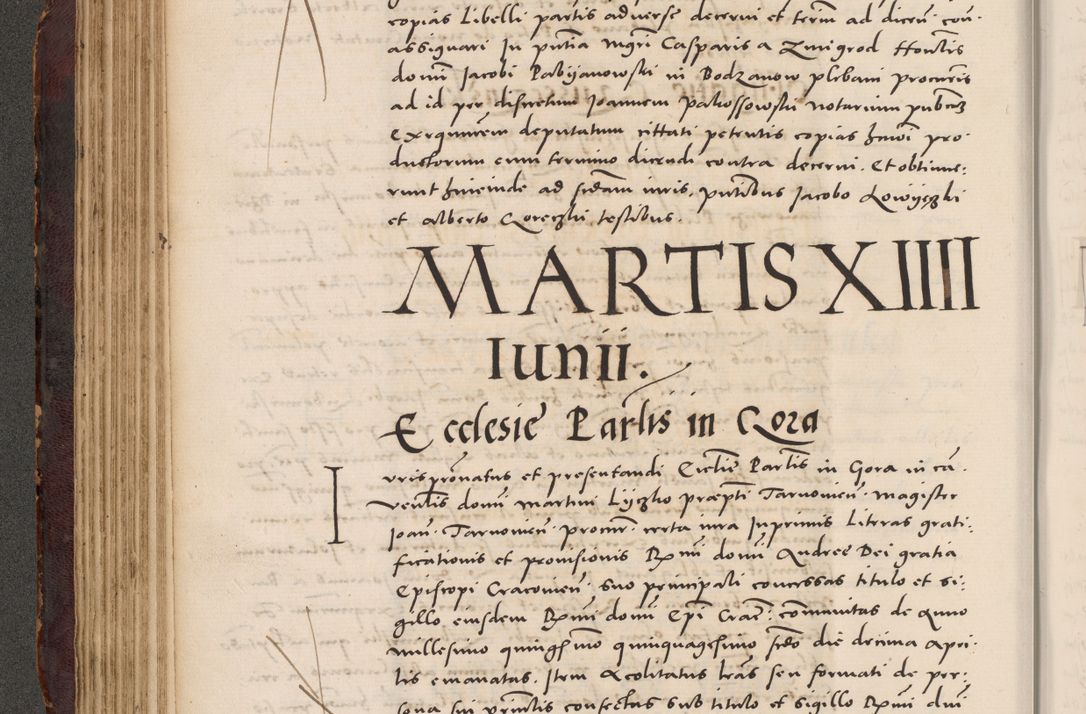 copias Libelli partis adverse decerni et term̃ ad dicen̄ con-
assignari In pn̄tia mgr̄i Casparis a Zmigrod ffontis
domī Jacobi Pabyanowski in Bodzanow plebani procuris
ad id per discretum Joannem Pakossowski notarium pub̄cu
Exequutem deputatum cittati petentis copias hm̄oi pro-
ductorum eum termino dicendi contra decerni. Et obtinue-
runt hincinde ad sedam iuris. pn̄tibus Jacobo Lowyczki
et Alberto Goreczki testibus.
MARTIS XIIII
Iunii.
Ecclesie Parlis in Gora
Iuris pronatus et presentandi Ecclīe Parlis in Gora in ca
venlis domī Martini Lyczko præpti Tarnovien̄ magister
Joan̄ Tarnovien̄ procur̄ certa iura Inprimis Literas grati-
ficationis et provisionis Rx̄mi domī Andree Dei gratia
Episcopi Cracovien̄ suo principali concessas titulo et si-
gillo eiusdem Rx̄mi domī Ep̄i Crac̄ com̄unitas de anno
millesimo quingēmo quinquagesimo scd̄o die decima Apri-
lis emanatas. Item Acolitatus Lrās seu formati de per-
sona sui prin̄lis confectas sub titulo et sigillo Rx̄mi dn̄i